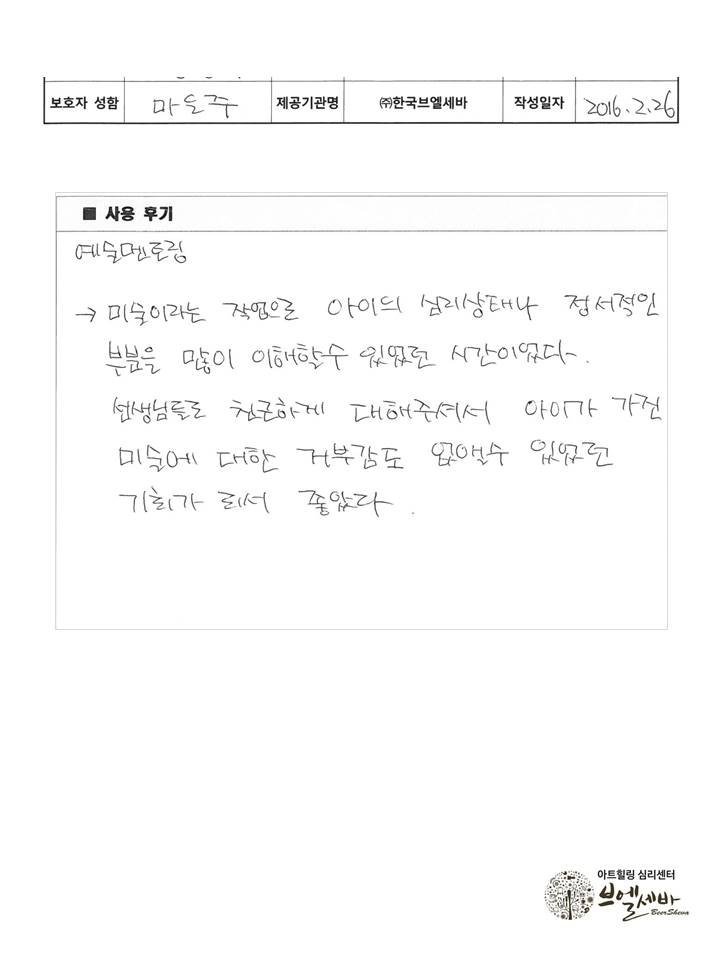 보호자 성함 마은주 제공기관명 ㈜한국브엘세바 작성일자 2016.2.26
■ 사용 후기
예술멘토링
→ 미술이라는 작업으로 아이의 심리상태나 정서적인
부분을 많이 이해할수 있었던 시간이었다.
선생님들도 친근하게 대해주셔서 아이가 가진
미술에 대한 거부감도 없앨수 있었던
기회가 되서 좋았다.
아트힐링 심리센터
브엘세바
BeerSheva